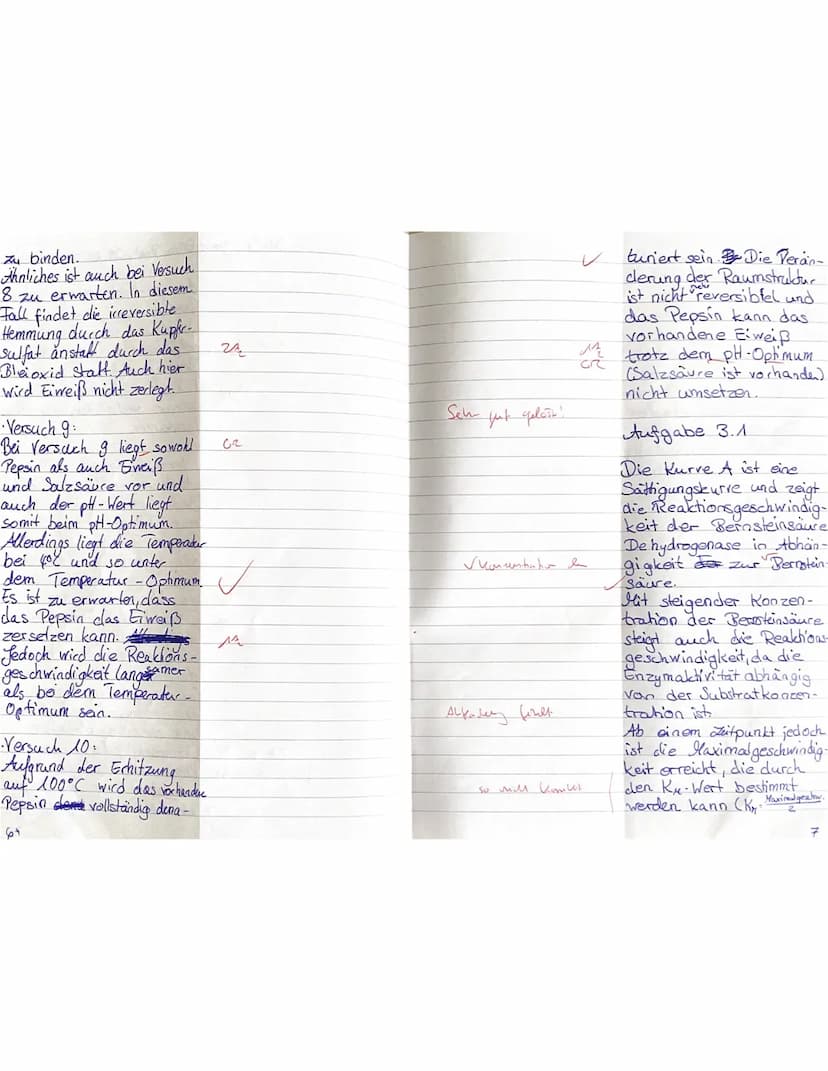 zu binden.
Ähnliches ist auch bei Versuch
8 zu erwarten. In diesem
Fall findet die irreversible
Hemmung durch das Kupfer-
sulfat anstatt durch das
Bleioxid statt. Auch hier
wird Eiweiß nicht zerlegt.
·Versuch 9:
Bei Versuch 9 liegt sowohl
Pepsin als auch Eiweiß
und Salzsäure vor und
auch der pH-Wert liegt
somit beim pH-Optimum.
Allerdings liegt die Temperatur
bei 4°C und so unter
dem Temperatur-Optimum.
Es ist zu erwarten, dass
das Pepsin das Eiweiß
zersetzen kann.
Jedoch wird die Reaktions-
geschwindigkeit langsamer
als bei dem Temperatur-
Optimum sein.
·Versuch 10:
Aufgrund der Erhitzung
auf 100°C wird das vorhandene
Pepsin vollständig dena-
turiert sein. Die Verän-
derung der Raumstruktur
ist nicht reversibel und
das Pepsin kann das
vorhandene Eiweiß
trotz dem pH-Optimum
(Salzsäure ist vorhanden)
nicht umsetzen.
Sehr gut gelöst!
Aufgabe 3.1
Die Kurve A ist eine
Sättigungskurve und zeigt
die Reaktionsgeschwindig-
keit der Bernsteinsäure
Dehydrogenase in Abhän-
gigkeit zur Bernstein-
säure.
√Konzentration der
Mit steigender Konzen-
tration der Bernsteinsäure
steigt auch die Reaktions-
geschwindigkeit, da die
Enzymaktivität abhängig
von der Substratkonzen-
tration ist.
fehlt
Ab einem Zeitpunkt jedoch
ist die Maximalgeschwindig-
keit erreicht, die durch
den KM-Wert bestimmt
so nicht korrekt
werden kann (KM= Maximalgeschw.
2
7